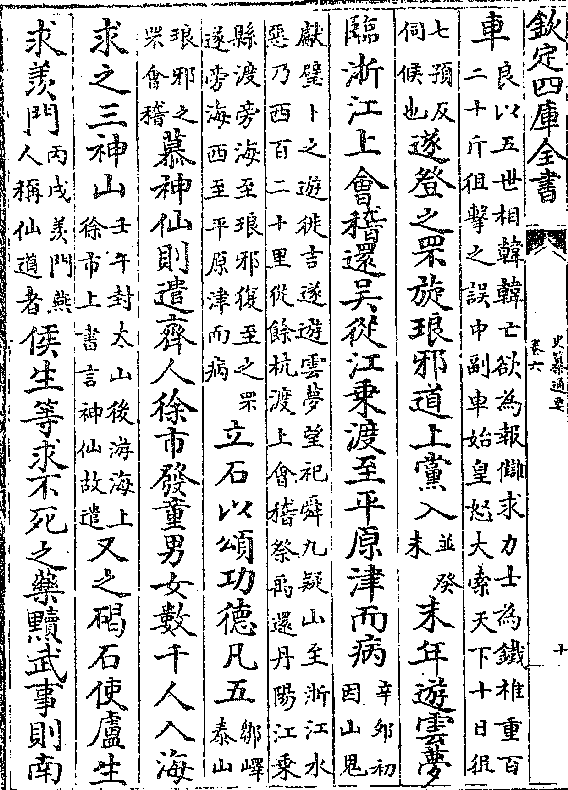 欽定四庫全書
史纂通要
卷六
十
車良以五世相韓韓亡欲為報讎求力士為鐵椎重百
二十斤狙擊之誤中副車始皇怒大索天下十日狙
七預反
伺候也遂登之罘旋琅邪道上黨入並癸
未末年遊雲夢
臨浙江上會稽還吳從江乗渡至平原津而病辛夘初
因山鬼
獻璧卜之遊徙吉遂遊雲夢望祀舜九疑山至浙江水
惡乃西百二十里從餘杭渡上會稽祭禹還丹陽江乗
縣渡旁海至琅邪復至之罘
遂旁海西至平原津而病立石以頌功德凡五鄒嶧
泰山
琅邪之
罘會稽慕神仙則遣齊人徐市發童男女數千人入海
求之三神山壬午封太山後游海上
徐市上書言神仙故遣又之碣石使盧生
求羨門丙戌羨門燕
人稱仙道者侯生等求不死之藥黷武事則南